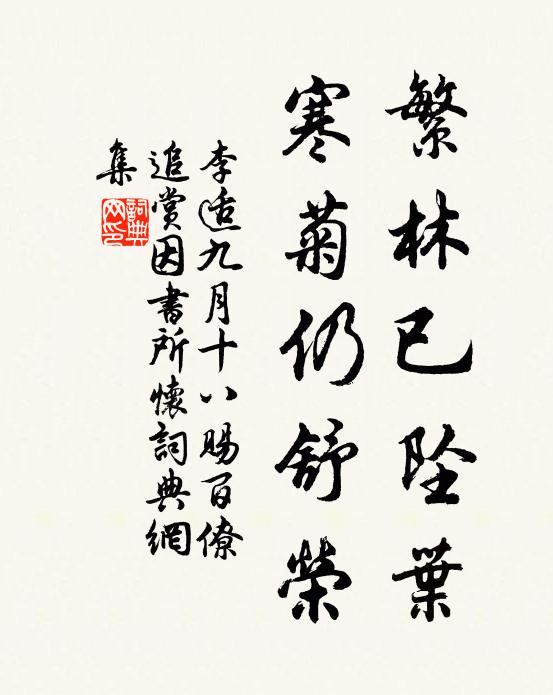 繁林已墜葉
寒菊仍舒榮
李适九月十八賜百僚
追賞因書所懷詞典網
集
詞典
网印